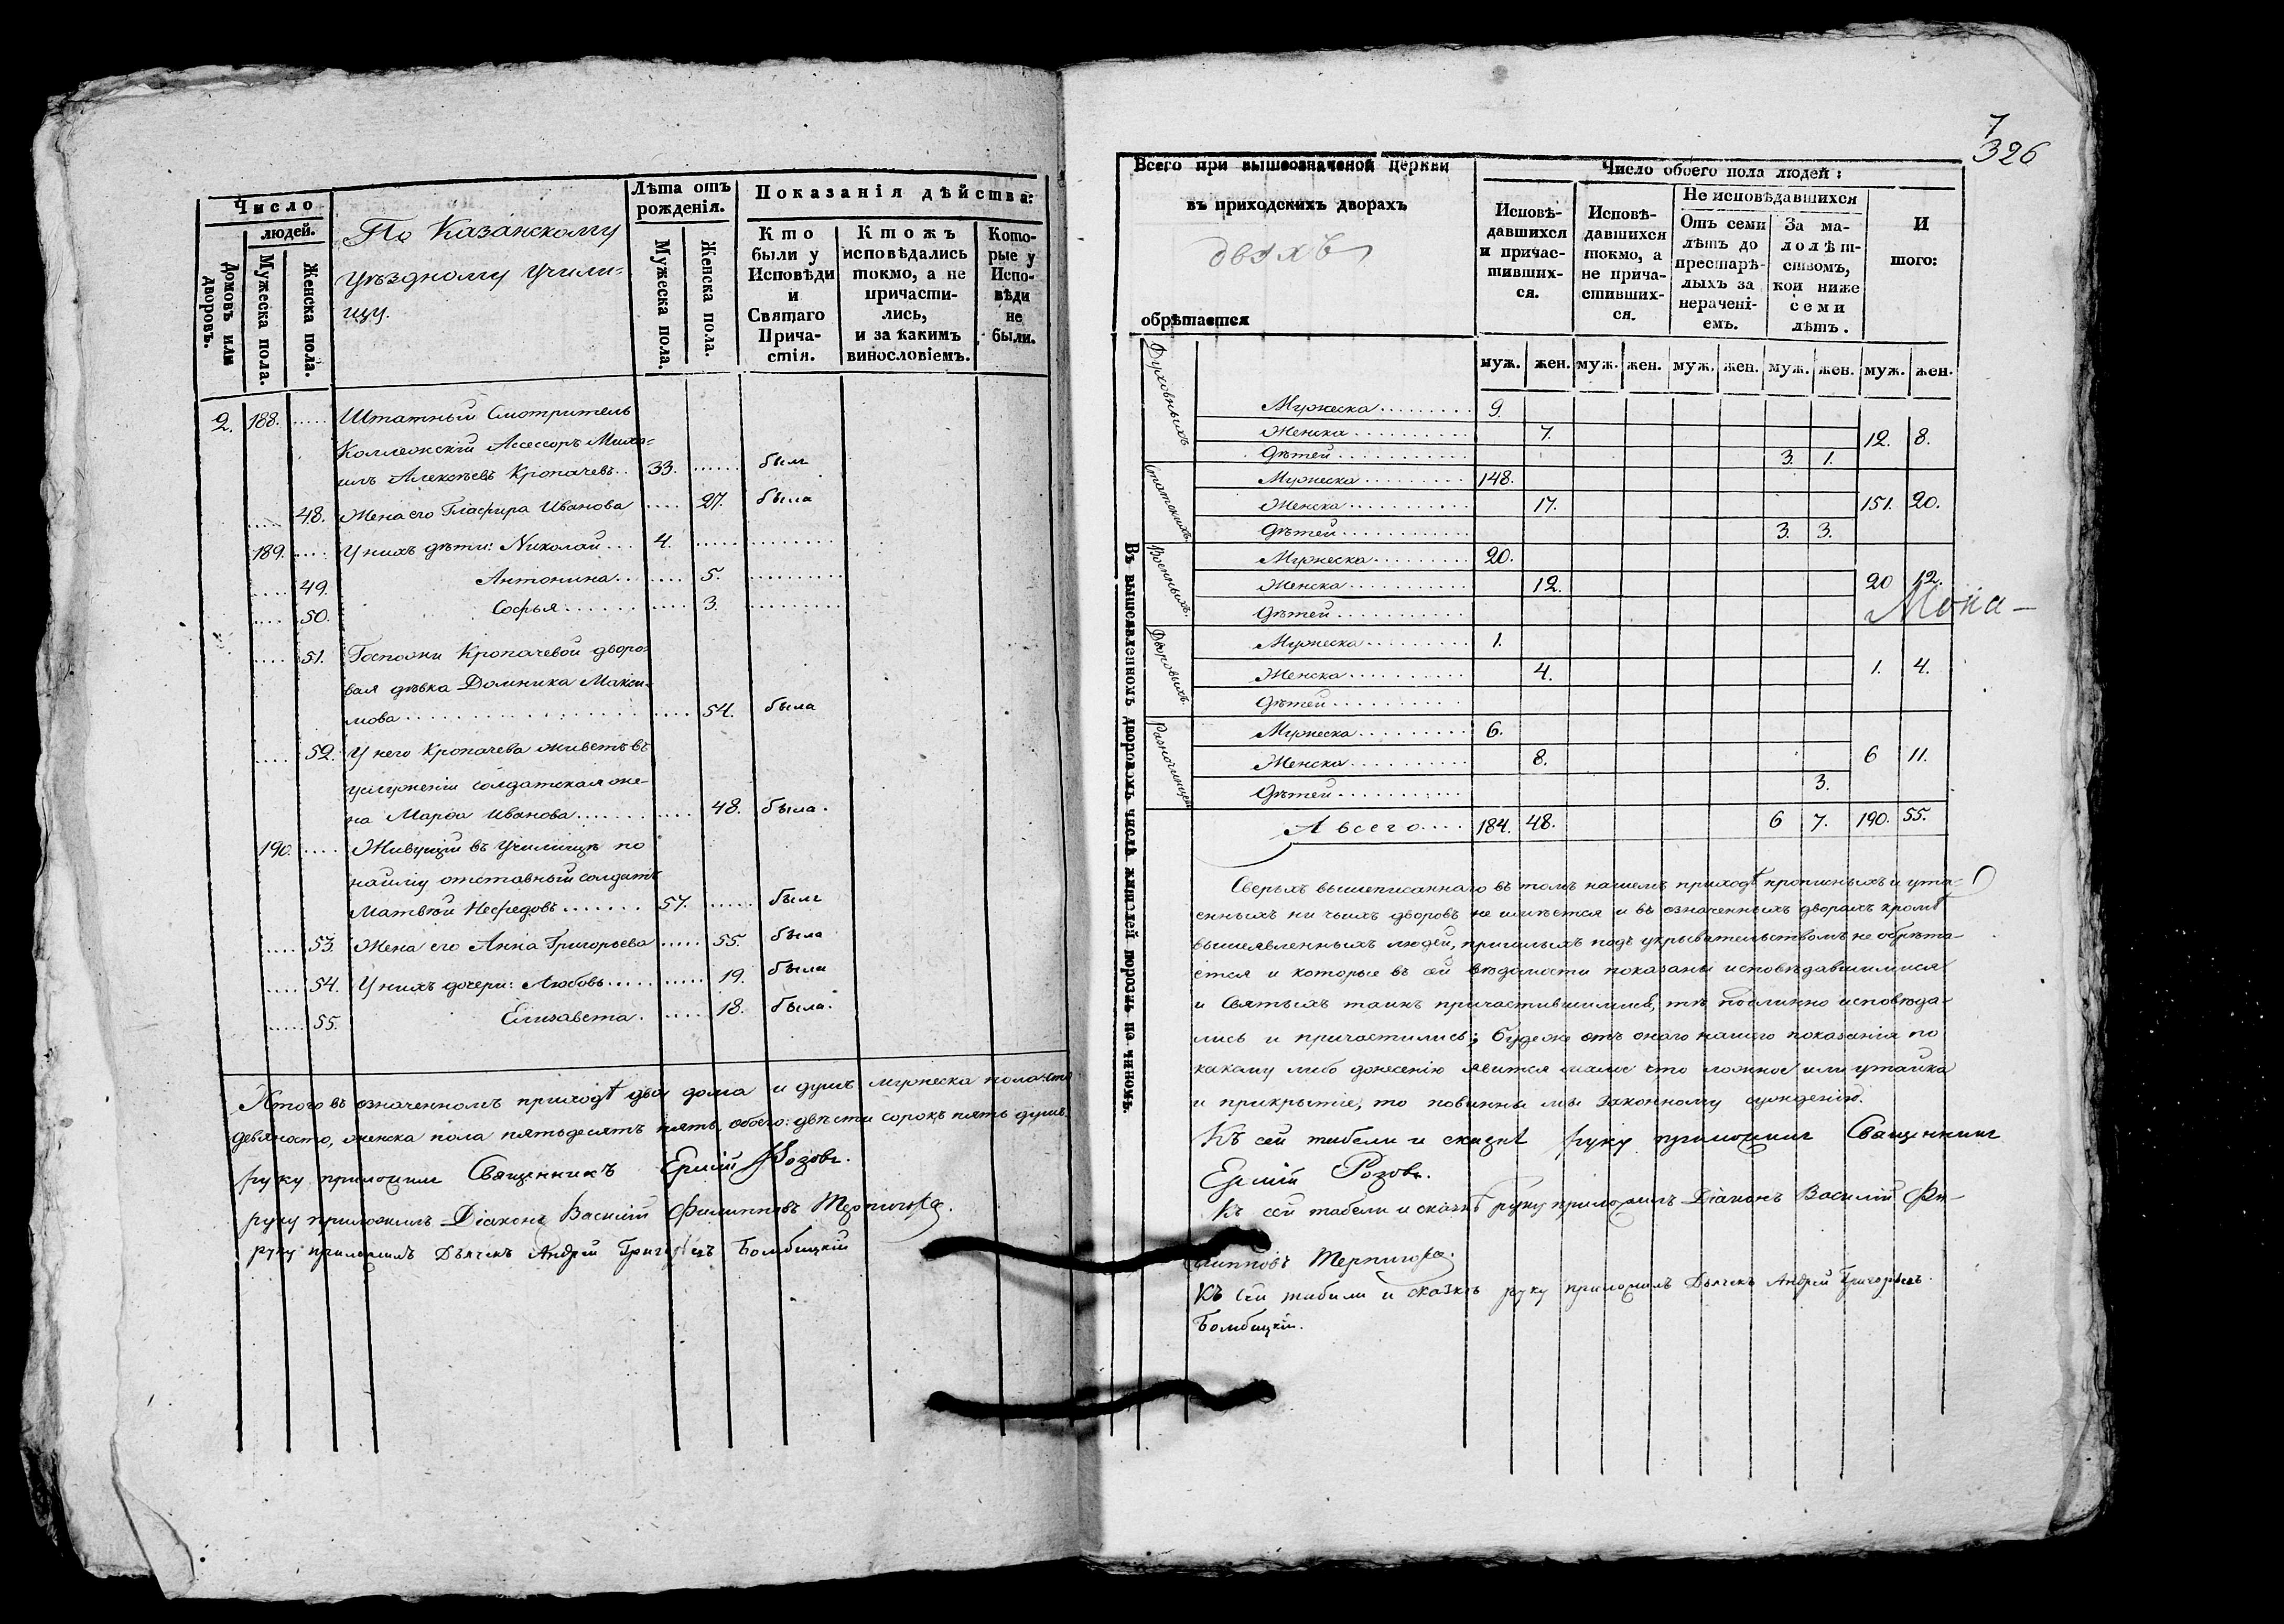 Число
людей.
Домовъ или дворовъ.
Мужеска пола.
Женска пола.
По Казанскому
уѣздному учили-
щу.
Лѣта отъ
рожденія.
Мужеска пола.
Женска пола.
Показанія дѣйства:
Кто
были у
Исповѣди
и
Святаго
Прича-
стія.
Ктожъ
исповѣдались
токмо, а не
причасти-
лись,
и за какимъ
винословіемъ.
Кото-
рые у
Испо-
вѣди
не
были.
2. 188. ..... Штатный Смотритель
Коллежскій Ассессоръ Миха-
илъ Алексѣевъ Кропачевъ.. 33. ...... былъ
..... 48. Жена его Глафира Иванова .... 27. была
189. .... У нихъ дѣти: Николай... 4. ...... .........
..... 49. Антонина... ..... 5. ..........
.... 50. Софья....... ..... 3. ..........
.... 51. Госпожи Кропачевой дворо-
вая дѣвка Домника Макси-
мова................... .... 54. была
.... 52. У него Кропачева живетъ въ
услуженіи солдатская же-
на Марѳа Иванова....... .... 48. была.
190. .... Живущій въ Училищѣ по
найму отставный солдатъ
Матвѣй Нефедовъ....... 57. ..... былъ
..... 53. Жена его Анна Григорьева ..... 55. была
.... 54. У нихъ дочери: Любовь..... ...... 19. была
..... 55. Елизавета. ...... 18. была.
Итого въ означенномъ приходѣ два дома и душъ мужеска пола сто
девяносто, женска пола пятьдесятъ пять, обоего: двѣсти сорокъ пять душъ.
руку приложилъ Священникъ Ермій Розовъ.
руку приложилъ Діаконъ Василій Филипповъ Терпигоревъ.
руку приложилъ Дьячекъ Андрей Григорьевъ Бомбицкій
7
326
Всего при вышеозначеной церкви
въ приходскихъ дворахъ
двухъ
обрѣтается
Число обоего пола людей:
Исповѣ-
давшихся
и причас-
тивших-
ся.
Исповѣ-
давшихся
токмо, а
не прича-
стивших-
ся.
Не исповѣдавшихся
Отъ семи
лѣтъ до
престарѣ-
лыхъ за
нерачені-
емъ.
За ма-
лолѣт-
ствомъ,
кои ниже
семи
лѣтъ.
И
того:
муж. жен. муж. жен. муж. жен. муж. жен. муж. жен.
Въ вышеявленномъ дворовомъ числѣ жителей порознь по чиномъ.
Духовныхъ
Мужеска......... 9.
Женска.......... 7. 12. 8.
Дѣтей........... 3. 1.
Статскихъ.
Мужеска......... 148.
Женска.......... 17. 151. 20.
Дѣтей........... 3. 3.
Военныхъ.
Мужеска......... 20.
Женска.......... 12. 20 12.
Дѣтей...........
Мона-
Дворовыхъ.
Мужеска......... 1.
Женска.......... 4. 1. 4.
Дѣтей...........
Разночинцевъ
Мужеска......... 6.
Женска.......... 8. 6 11.
Дѣтей........... 3.
А всего.... 184. 48. 6 7. 190. 55.
Сверьхъ вышеписаннаго въ томъ нашемъ приходѣ прописныхъ и ута-
енныхъ ни чьихъ дворовъ не имѣется и въ означенныхъ дворахъ кромѣ
вышеявленныхъ людей, пришлыхъ подъ укрывательствомъ не обрѣта-
ется и которые въ сей вѣдомости показаны исповѣдавшимися
и Святыхъ таинъ причастившимися, тѣ подлинно исповѣда-
лись и причастились; будеже отъ онаго нашего показанія по
какому либо донесенію явится малое что ложное или утайка
и прикрытіе, то повинны мы законному сужденію.
Къ сей табели и сказкѣ руку приложилъ Священникъ
Ермій Розовъ.
Къ сей табели и сказкѣ руку приложилъ Діаконъ Василій Фи-
липповъ Терпигоревъ.
Къ сей табели и сказкѣ руку приложилъ Дьячекъ Андрей Григорьевъ
Бомбицкій.